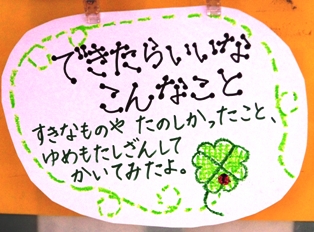 できたらいいな
こんなこと
すきなものや たのしかったこと、
ゆめもたしざんして
かいてみたよ。